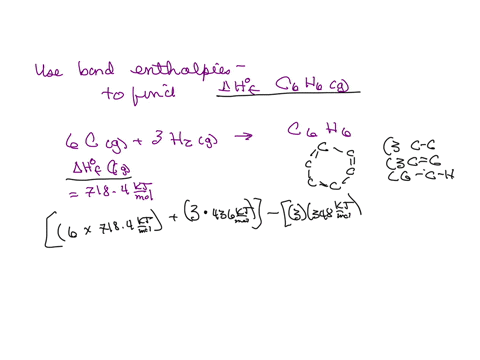 Use bond enthalpies -
to find ΔH°f C6H6(g)
6 C(g) + 3 H2(g) → C6H6
ΔH°f C(g)
= 718.4 kJ/mol
C C C C C C
(3 C-C
(3 C=C
(6 - C-H
[(6 x 718.4 kJ/mol) + (3 · 436 kJ/mol)] - [(3)(348 kJ/mol)